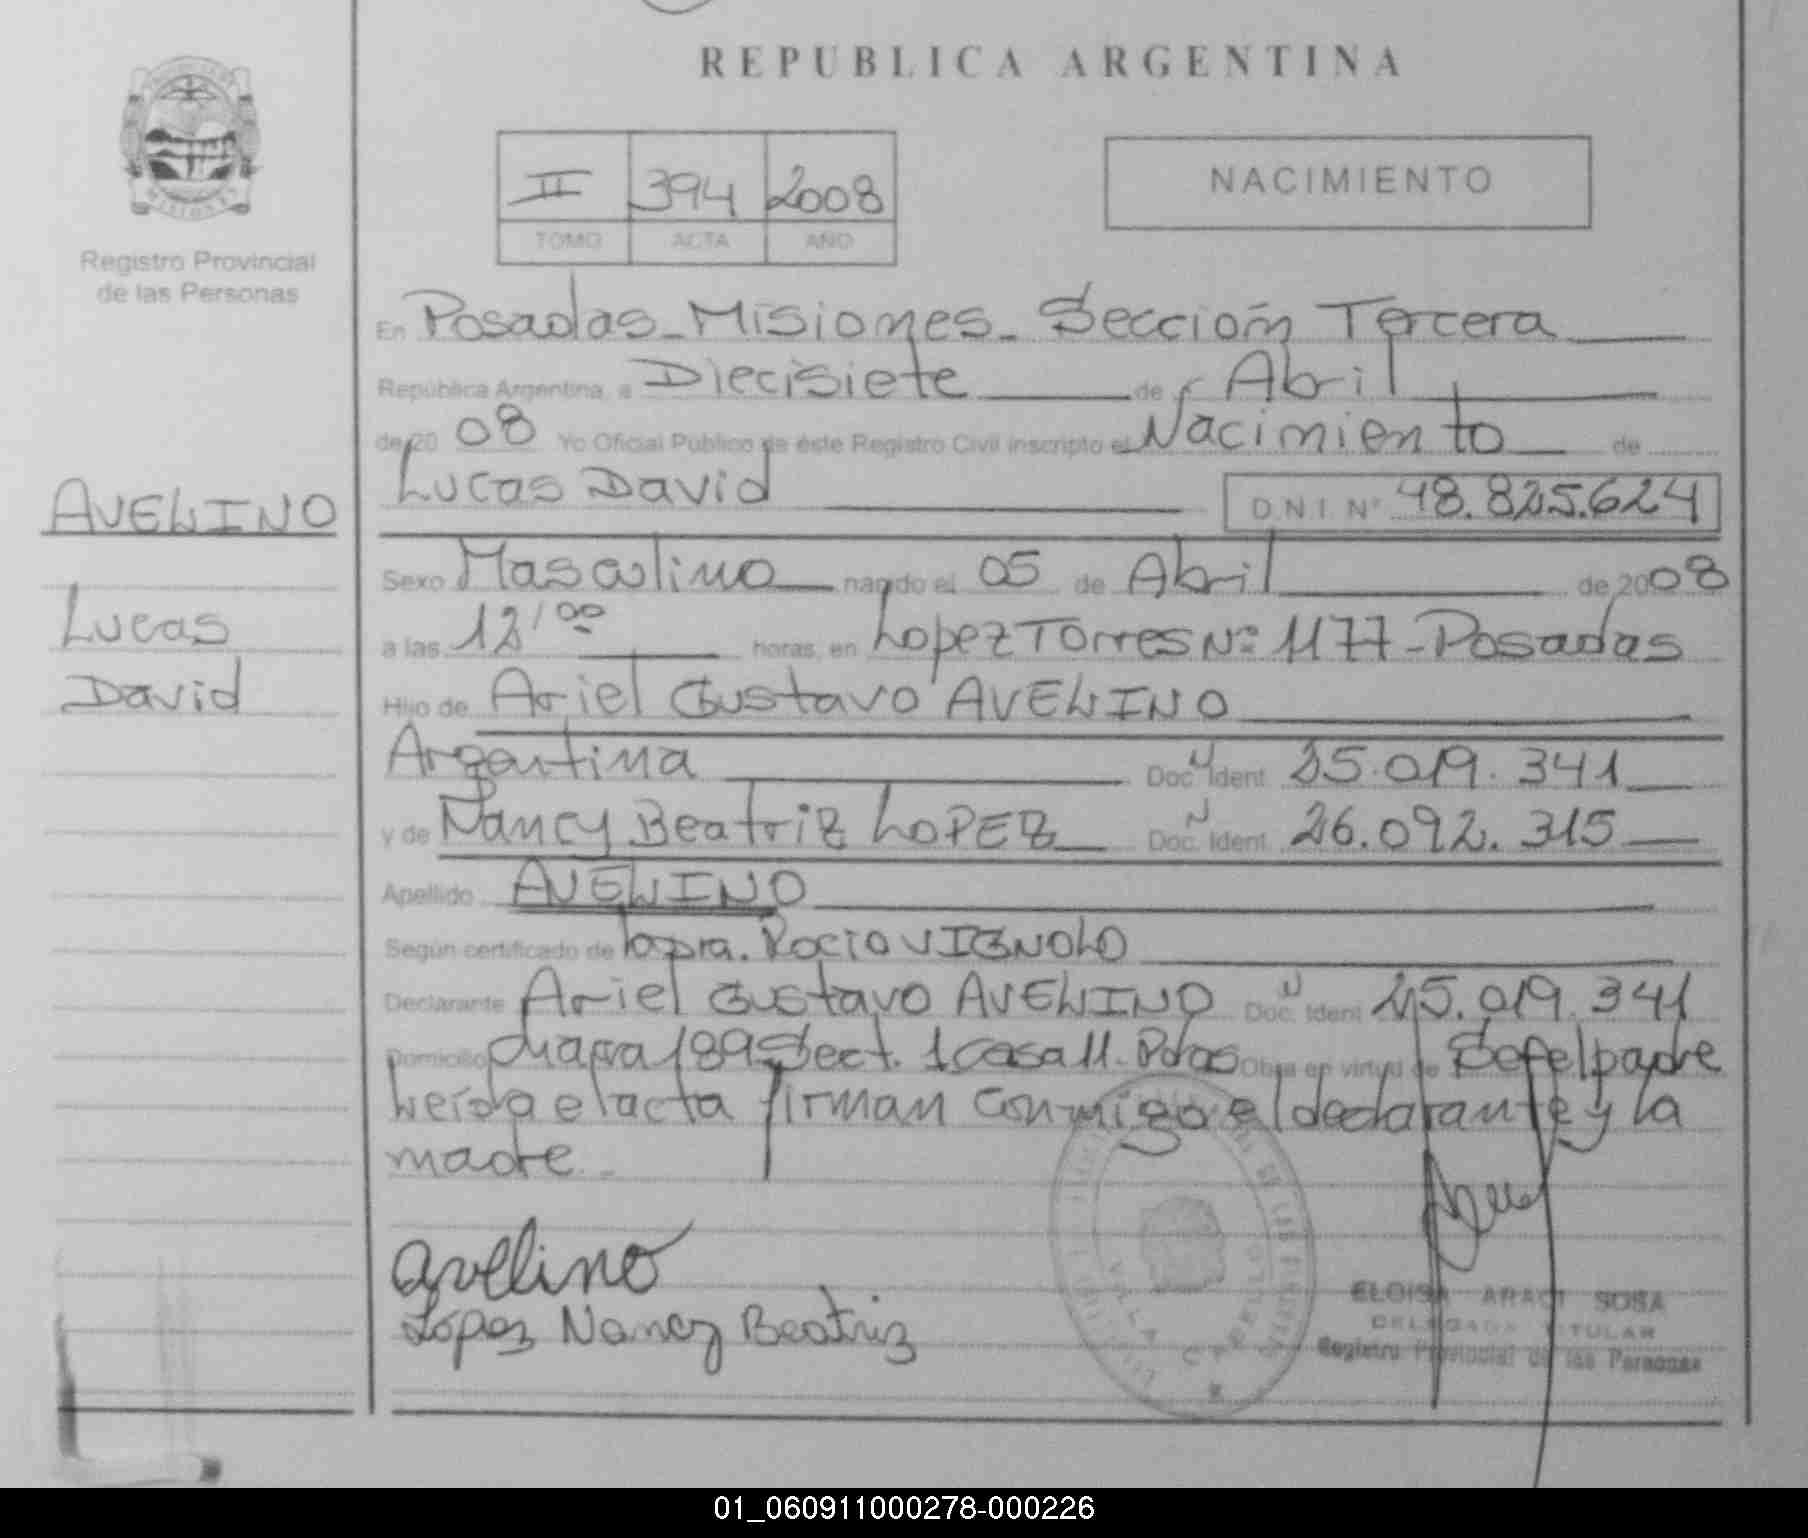 REPUBLICA ARGENTINA
II 394 2008
TOMO ACTA AÑO
NACIMIENTO
Registro Provincial
de las Personas
AVELINO
Lucas
David
En Posadas - Misiones - Sección Tercera
República Argentina, a Diecisiete de Abril
de 20 08 Yo Oficial Público de éste Registro Civil inscripto el Nacimiento de
Lucas David D.N.I. Nº 48.825.624
Sexo Masculino nacido el 05 de Abril de 2008
a las 12'00 horas, en Lopez Torres Nº 1177 - Posadas
Hijo de Ariel Gustavo AVELINO
Argentina Doc. Ident. 25.019.341
y de Nancy Beatriz LOPEZ Doc. Ident. 26.092.315
Apellido AVELINO
Según certificado de Rocio VIGNOLO
Declarante Ariel Gustavo AVELINO Doc. Ident. 25.019.341
Domicilio Chacra 189 Sect. 1 Casa 11 - Pdas Obra en virtud de Ser el padre
Leída el acta firman conmigo el declarante y la
madre.
avelino
López Nancy Beatriz
VILLA CABELLO
ELOISA ARACI SOSA
DELEGADA TITULAR
Registro Provincial de las Personas
01_060911000278-000226